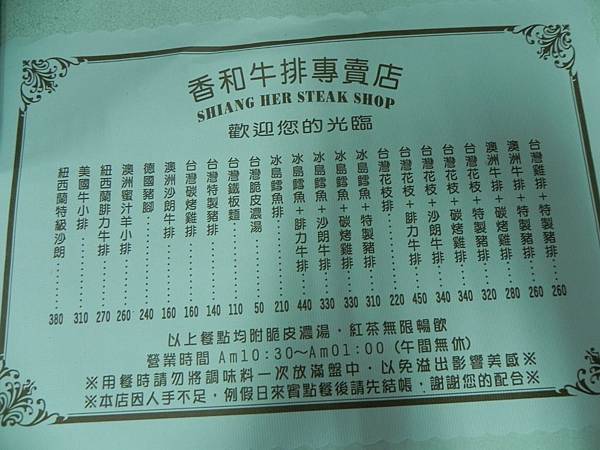 香和牛排專賣店
SHIANG HER STEAK SHOP
歡迎您的光臨
台灣雞排+特製豬排……260
澳洲牛排+特製豬排……260
澳洲牛排+碳烤雞排……280
台灣花枝+特製豬排……320
台灣花枝+碳烤雞排……340
台灣花枝+沙朗牛排……340
台灣花枝+腓力牛排……450
台灣花枝排……220
冰島鱈魚+特製豬排……310
冰島鱈魚+碳烤雞排……330
冰島鱈魚+沙朗牛排……330
冰島鱈魚+腓力牛排……440
冰島鱈魚排……210
台灣脆皮濃湯……50
台灣鐵板麵……110
台灣特製豬排……140
台灣碳烤雞排……160
澳洲沙朗牛排……160
德國豬腳……240
澳洲蜜汁羊小排……260
紐西蘭腓力牛排……270
美國牛小排……310
紐西蘭特級沙朗……380
以上餐點均附脆皮濃湯．紅茶無限暢飲
營業時間 Am10:30～Am01:00 (午間無休)
※用餐時請勿將調味料一次放滿盤中，以免溢出影響美感※
※本店因人手不足，例假日來賓點餐後請先結帳，謝謝您的配合※